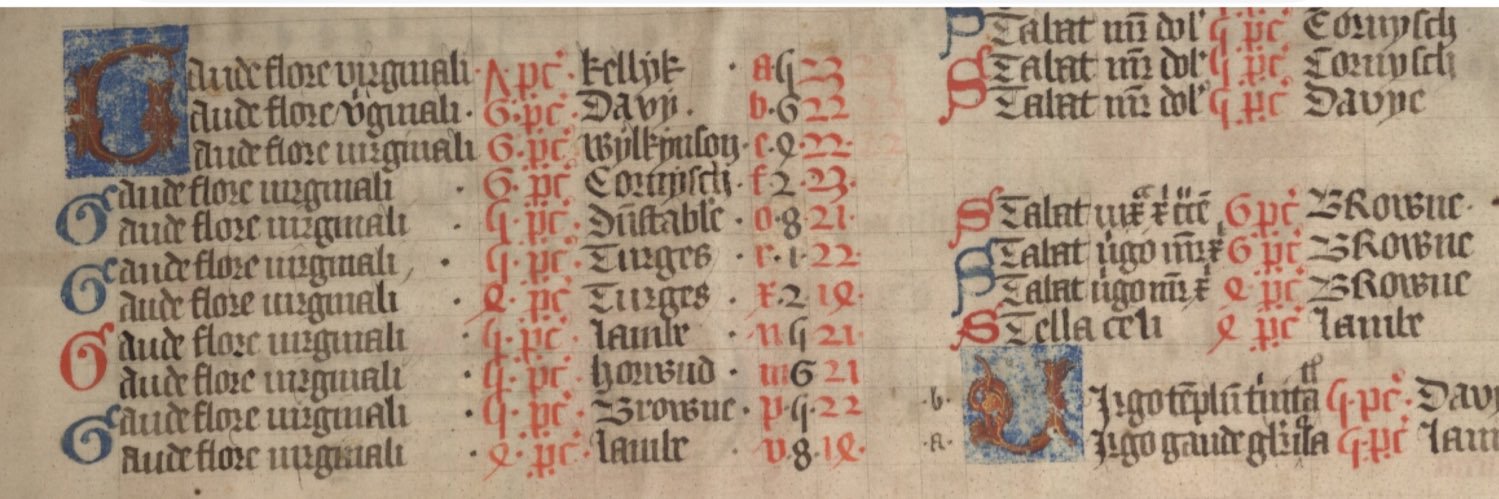 Gaude flore virginali · 7 pc · kellyk · a 5 22
aude flore v̓ginali · 6 · pc · Davy · b · 6 22
aude flore uirginali 6 · pc · wylkynson · c · 4 · 22
Gaude flore uirginali · 6 · pc · Cornysch · f · 2 · 23
aude flore uirginali · 5 · pc · Dūstable · o · 8 · 21
Gaude flore uirginali · 5 · pc · Turges · r · 1 · 22
aude flore uirginali · 4 · pc · Turges · x · 2 14
Gaude flore uirginali · 5 · pc · lambe · n 5 21
aude flore uirginali · 5 · pc · horwud · m 6 21
Gaude flore uirginali · 5 · pc · Browne · p · 5 · 22
aude flore uirginali · 4 · pc · lambe · v · 8 · 14
Stabat mr̄ dol' 5 pc Cornysch
Stabat mr̄ dol' 5 pc Cornysch
Stabat mr̄ dol' 5 pc Davye
Stabat 6 pc BRowne ·
Stabat ūgo mr̄ x̄ 6 pc BRowne
Stabat ūgo mr̄ x̄ 4 pc BRowne
Stella celi 4 pc lambe
· b · Uirgo tēplū t̓nita 5 · pc · Davy
· a · irgo gaude gl̄osa 5 · pc · lam